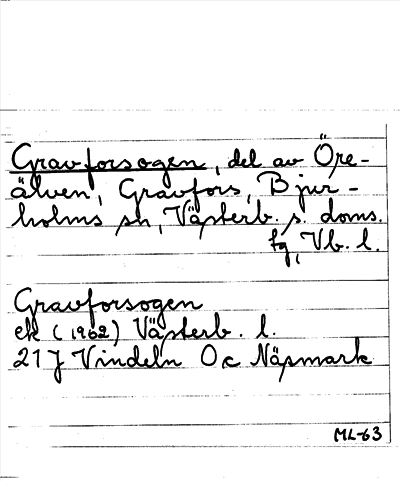 Gravforsogen, del av Öre-
älven, Gravfors, Bjur-
holms sn, Västerb. s. doms.
tg, Vb. l.
Gravforsogen
ek (1962) Västerb. l.
21J Vindeln 0c Näsmark
ML-63